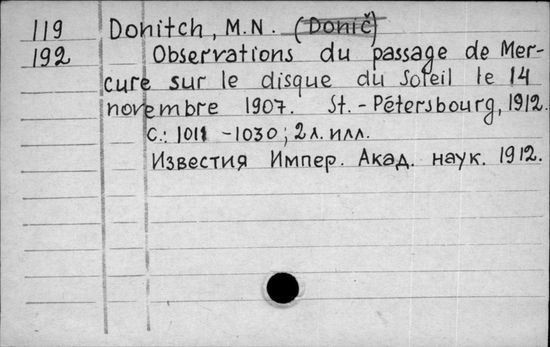 119 Donitch, M.N. (Donič)
192 Observations du passage de Mer-
cure sur le disque du Soleil le 14
novembre 1907. St.-Pétersbourg, 1912.
С.: 1011 - 1030; 2 л. илл.
Известия Импер. Акад. наук. 1912.